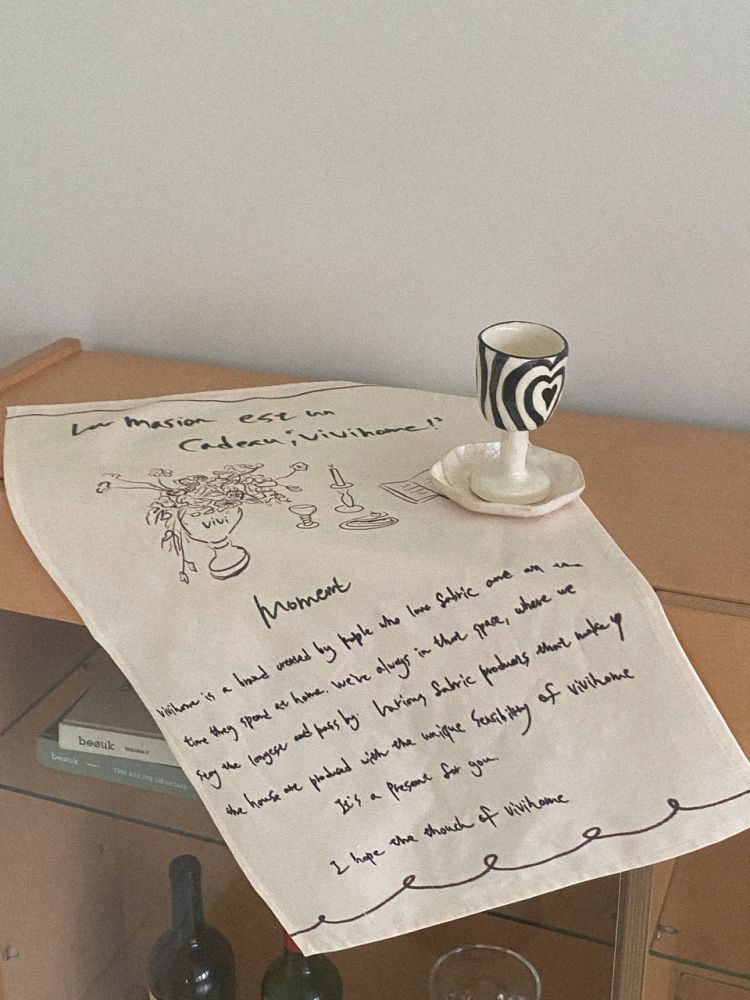 La Masion est un
Cadeau; ViVihome!
ViVi
Moment
ViVihome is a brand created by people who love fabric and an
time they spend at home. We're always in that space, where we
stay the longest and pass by. Various fabric products that make up
the house are produced with the unique sensibility of ViVihome
It's a present for you.
I hope the thouch of ViVihome
besuk
besuk
THE RECIPE OF HOME